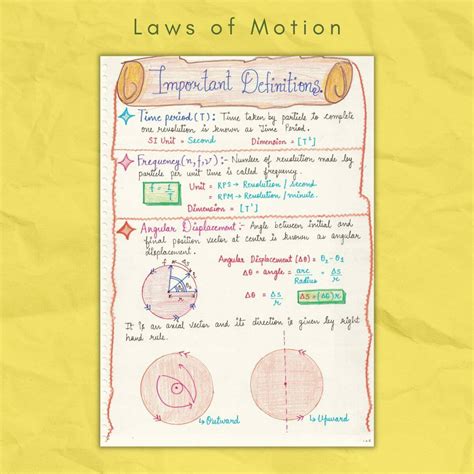 Laws of Motion
Important Definitions
Time period (T) : Time taken by particle to complete
one revolution is known as Time Period.
SI Unit = Second Dimension = [T¹]
Frequency (n, f, ν) :- Number of revolution made by
particle per unit time is called frequency.
f = 1/T
Unit = RPS → Revolution / second
= RPM → Revolution / minute.
Dimension = [T⁻¹]
Angular Displacement :- Angle between initial and
final position vector at centre is known as angular
displacement.
Angular Displacement (Δθ) = θ₂ - θ₁
Δθ = angle = arc/Radius = Δs/r
Δθ = Δs/r
Δs = (Δθ)r
It is an axial vector and its direction is given by right
hand rule.
↳ Outward
↳ Upward